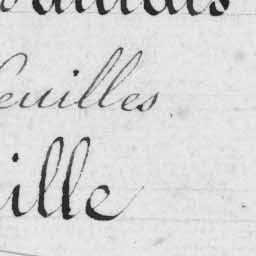 euilles
ille